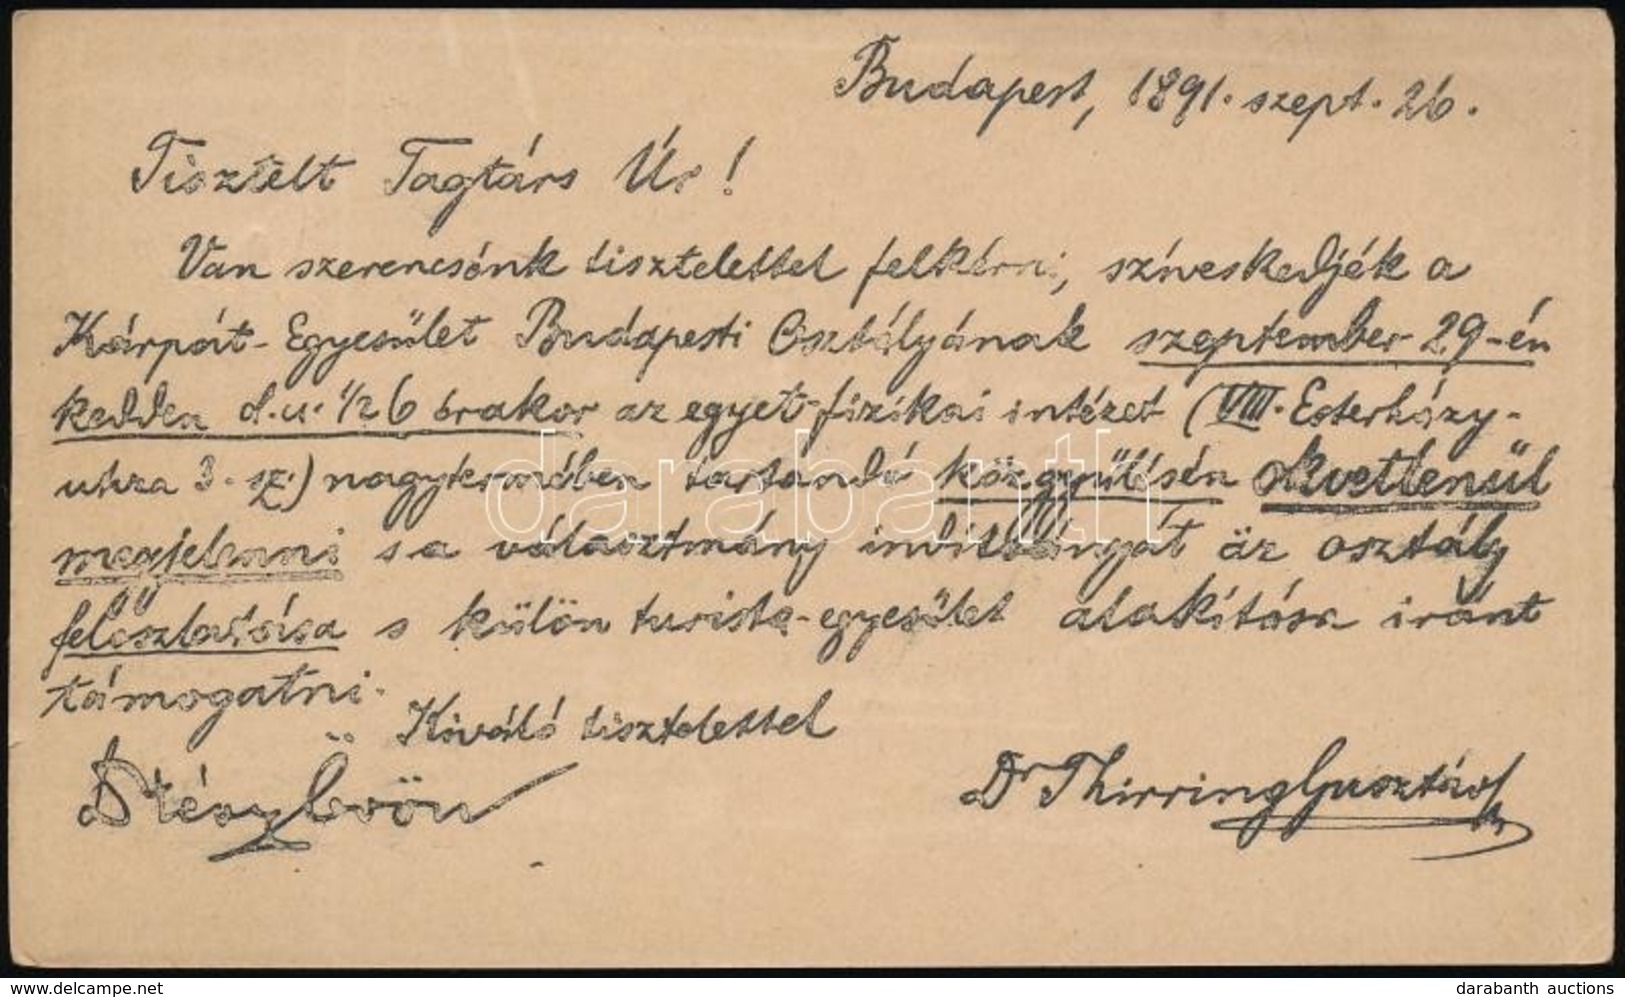 Budapest, 1891. szept. 26.
Tisztelt Tagtárs Úr!
Van szerencsénk tisztelettel felkérni, szíveskedjék a
Kárpát-Egyesület Budapesti Osztályának szeptember 29-én
kedden d.u. 1/2 6 órakor az egyet. fizikai intézet (VIII. Esterházy-
utcza 3. sz.) nagytermében tartandó közgyűlésén okvetlenül
megjelenni s a választmány indítványát az osztály
feloszlatása s külön turista-egyesület alakítása iránt
támogatni.
Kiváló tisztelettel
Dr Thirring Gusztáv
darabanth
www.delcampe.net
darabanth auctions